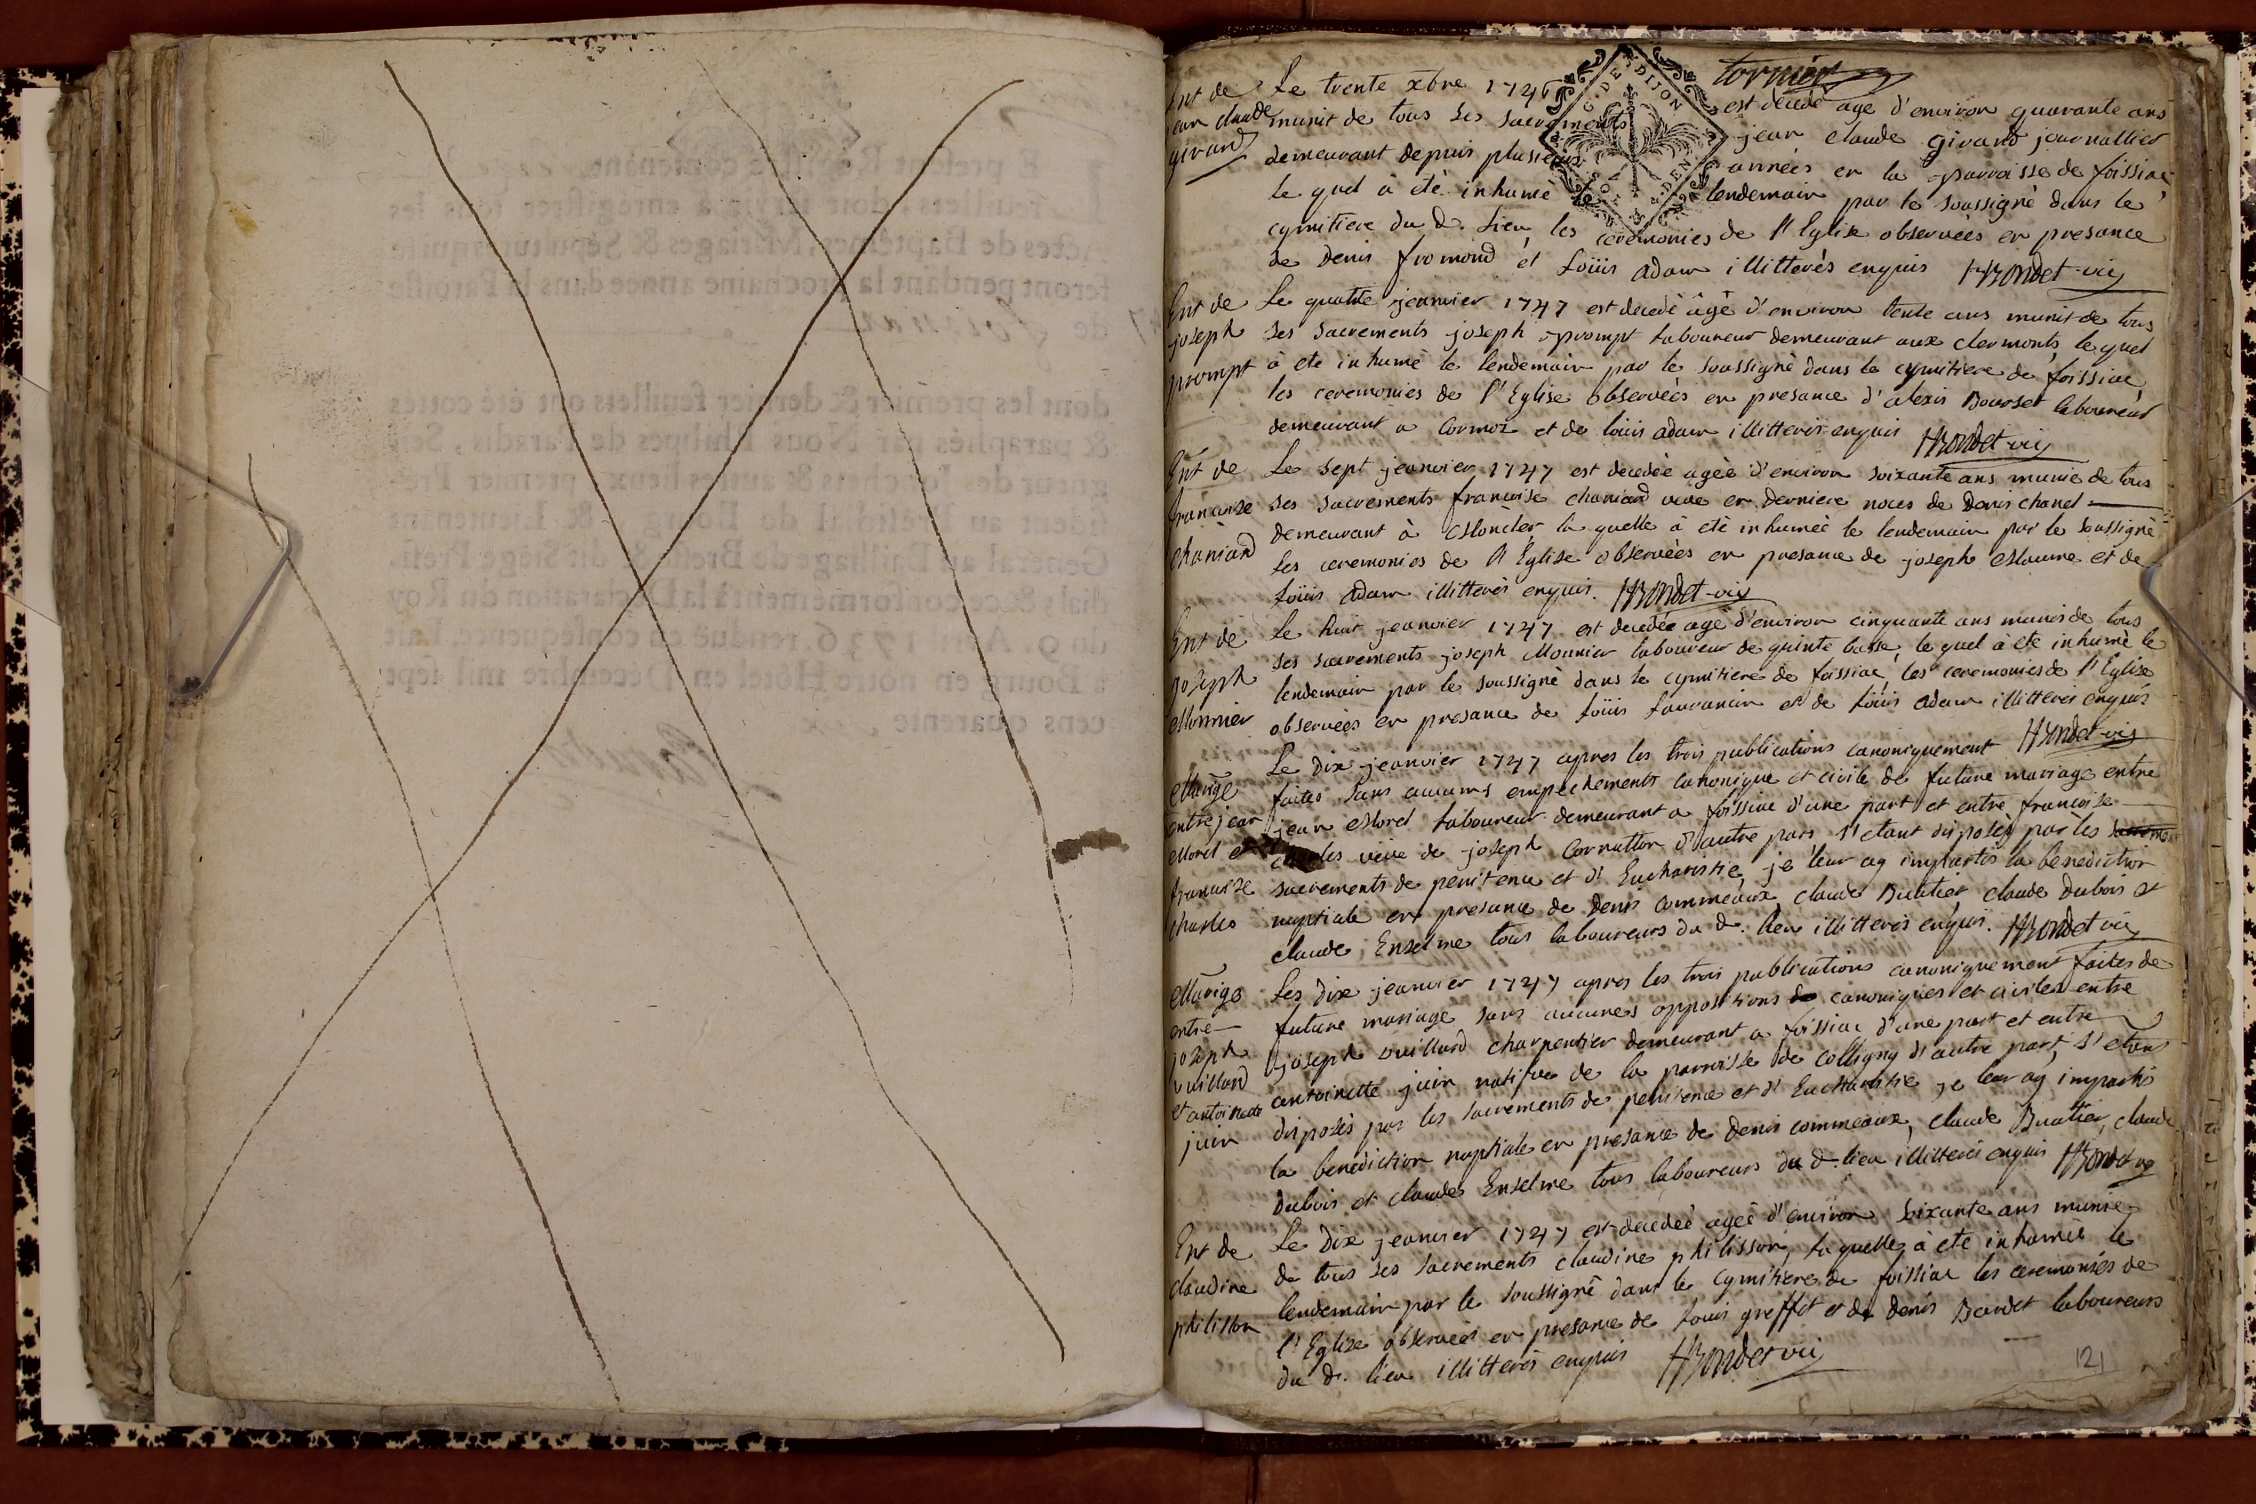 tornier
Ent de
jean claude
girard
Le trente xbre 1746 est decedé agé d'environ quarante ans
munit de tous ses sacrements jean claude girard journallier
demeurant depuis plusieurs années en la parroisse de foissiac
le quel à été inhumé le lendemain par le soussigné dans le
cymitiere du d. lieu, les ceremonies de l'Eglise observées en presance
de denis fromond et loüis adam illitterés enquis HBondet vic
Ent de
joseph
prompt
Le quatre jeanvier 1747 est decedé âgé d'environ trente ans munit de tous
ses sacrements joseph prompt laboureur demeurant aux clermonts, le quel
à eté inhumé le lendemain par le soussigné dans le cymitiere de foissiac
les ceremonies de l'Eglise observeés en presance d'alexis Bourset laboureur
demeurant a Cormoz et de loüis adam illitterés enquis HBondet vic
Ent de
francoise
chaniard
Le sept jeanvier 1747 est decedeé ageé d'environ soixante ans munie de tous
ses sacrements francoise chaniard veve en derniere noces de Denis chanel
demeurant à la quelle à eté inhumeé le lendemain par le soussigné
les ceremonies de l'Eglise observeés en presance de joseph et de
loüis adam illitterés enquis. HBondet vic
Ent de
joseph
Monnier
Le huit jeanvier 1747 est decedée agé d'environ cinquante ans munis de tous
ses sacrements joseph Monnier laboureur de quinte basse, le quel à été inhumé le
lendemain par le soussigné dans le cymitiere de foissiac, les ceremonies de l'Eglise
observeés en presance de loüis et de loüis adam illitterés enquis
HBondet vic
Marige
entre jean
Morel et
francoise
charles
Le Dix jeanvier 1747 apres les trois publications canoniquement
faites sans aucuns empechements canonique et civile de future mariage entre
jean Morel laboureur demeurant a foissiac d'une part et entre francoise
charles veve de joseph Cornatton d'autre part, s'etant disposés par les
sacrements de penitence et d'Eucharistie, je leur ay impartis la benediction
nuptiale en presance de denis commeaux, claude Buatier, claude dubois et
claude Enselme tous laboureurs du d. lieu illitterés enquis. HBondet vic
Marige
entre
joseph
vuillard
et antoinette
juin
Les dix jeanvier 1747 apres les trois publications canoniquement faites de
future mariage sans aucunes oppositions de canoniques et civiles entre
joseph vuillard charpentier demeurant a foissiac d'une part et entre
antoinette juin native de la parroisse de colligny d'autre part, s'etans
disposés par les sacrements de penitence et d'Eucharistie je leur ay impartis
la benediction nuptiale en presance de denis commeaux, claude Buatier, claude
dubois et claude Enselme tous laboureurs du d. lieu illitterés enquis HBondet vic
Ent de
claudine
philisson
Le Dix jeanvier 1747 est decedeé ageé d'environ soixante ans munie
de tous ses sacrements claudine philisson, laquelle à eté inhumeé le
lendemain par le soussigné dans le cymitiere de foissiac les ceremonies de
l'Eglise observeés en presance de loüis greffet et de denis Bandet laboureurs
du d. lieu illitterés enquis HBondet vic
121